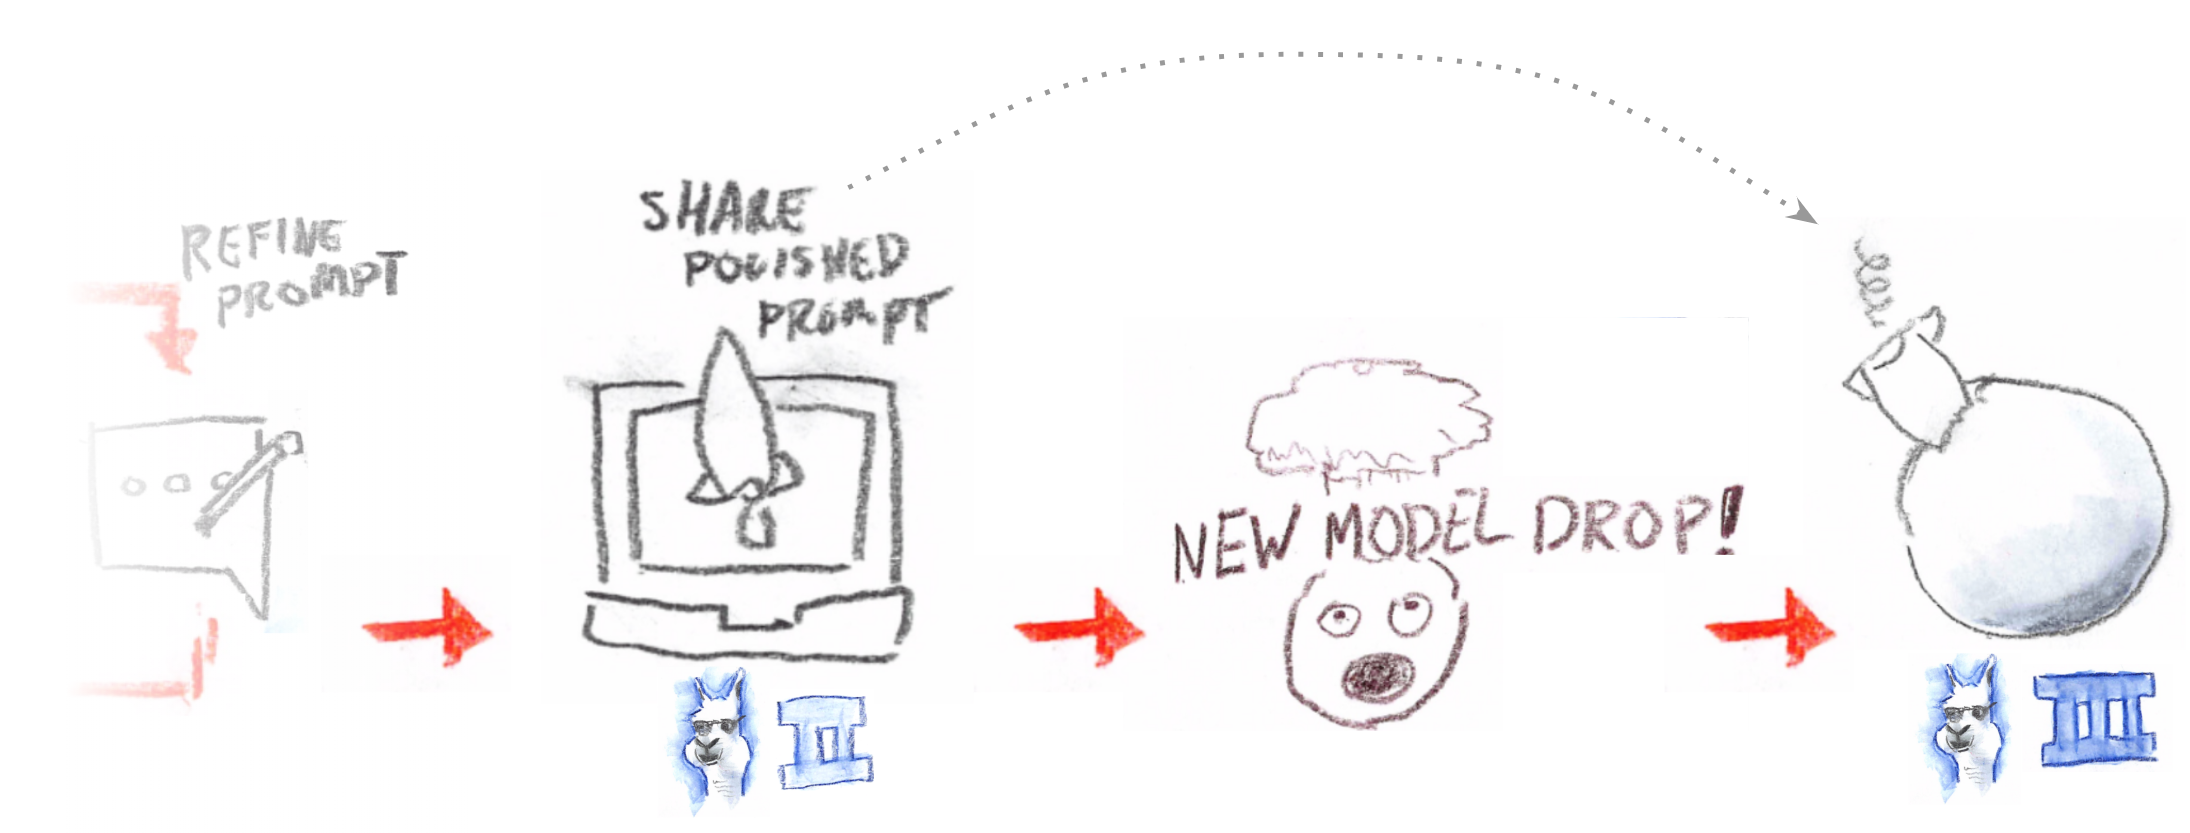 REFINE
PROMPT
SHARE
POLISHED
PROMPT
NEW MODEL DROP!
II
III